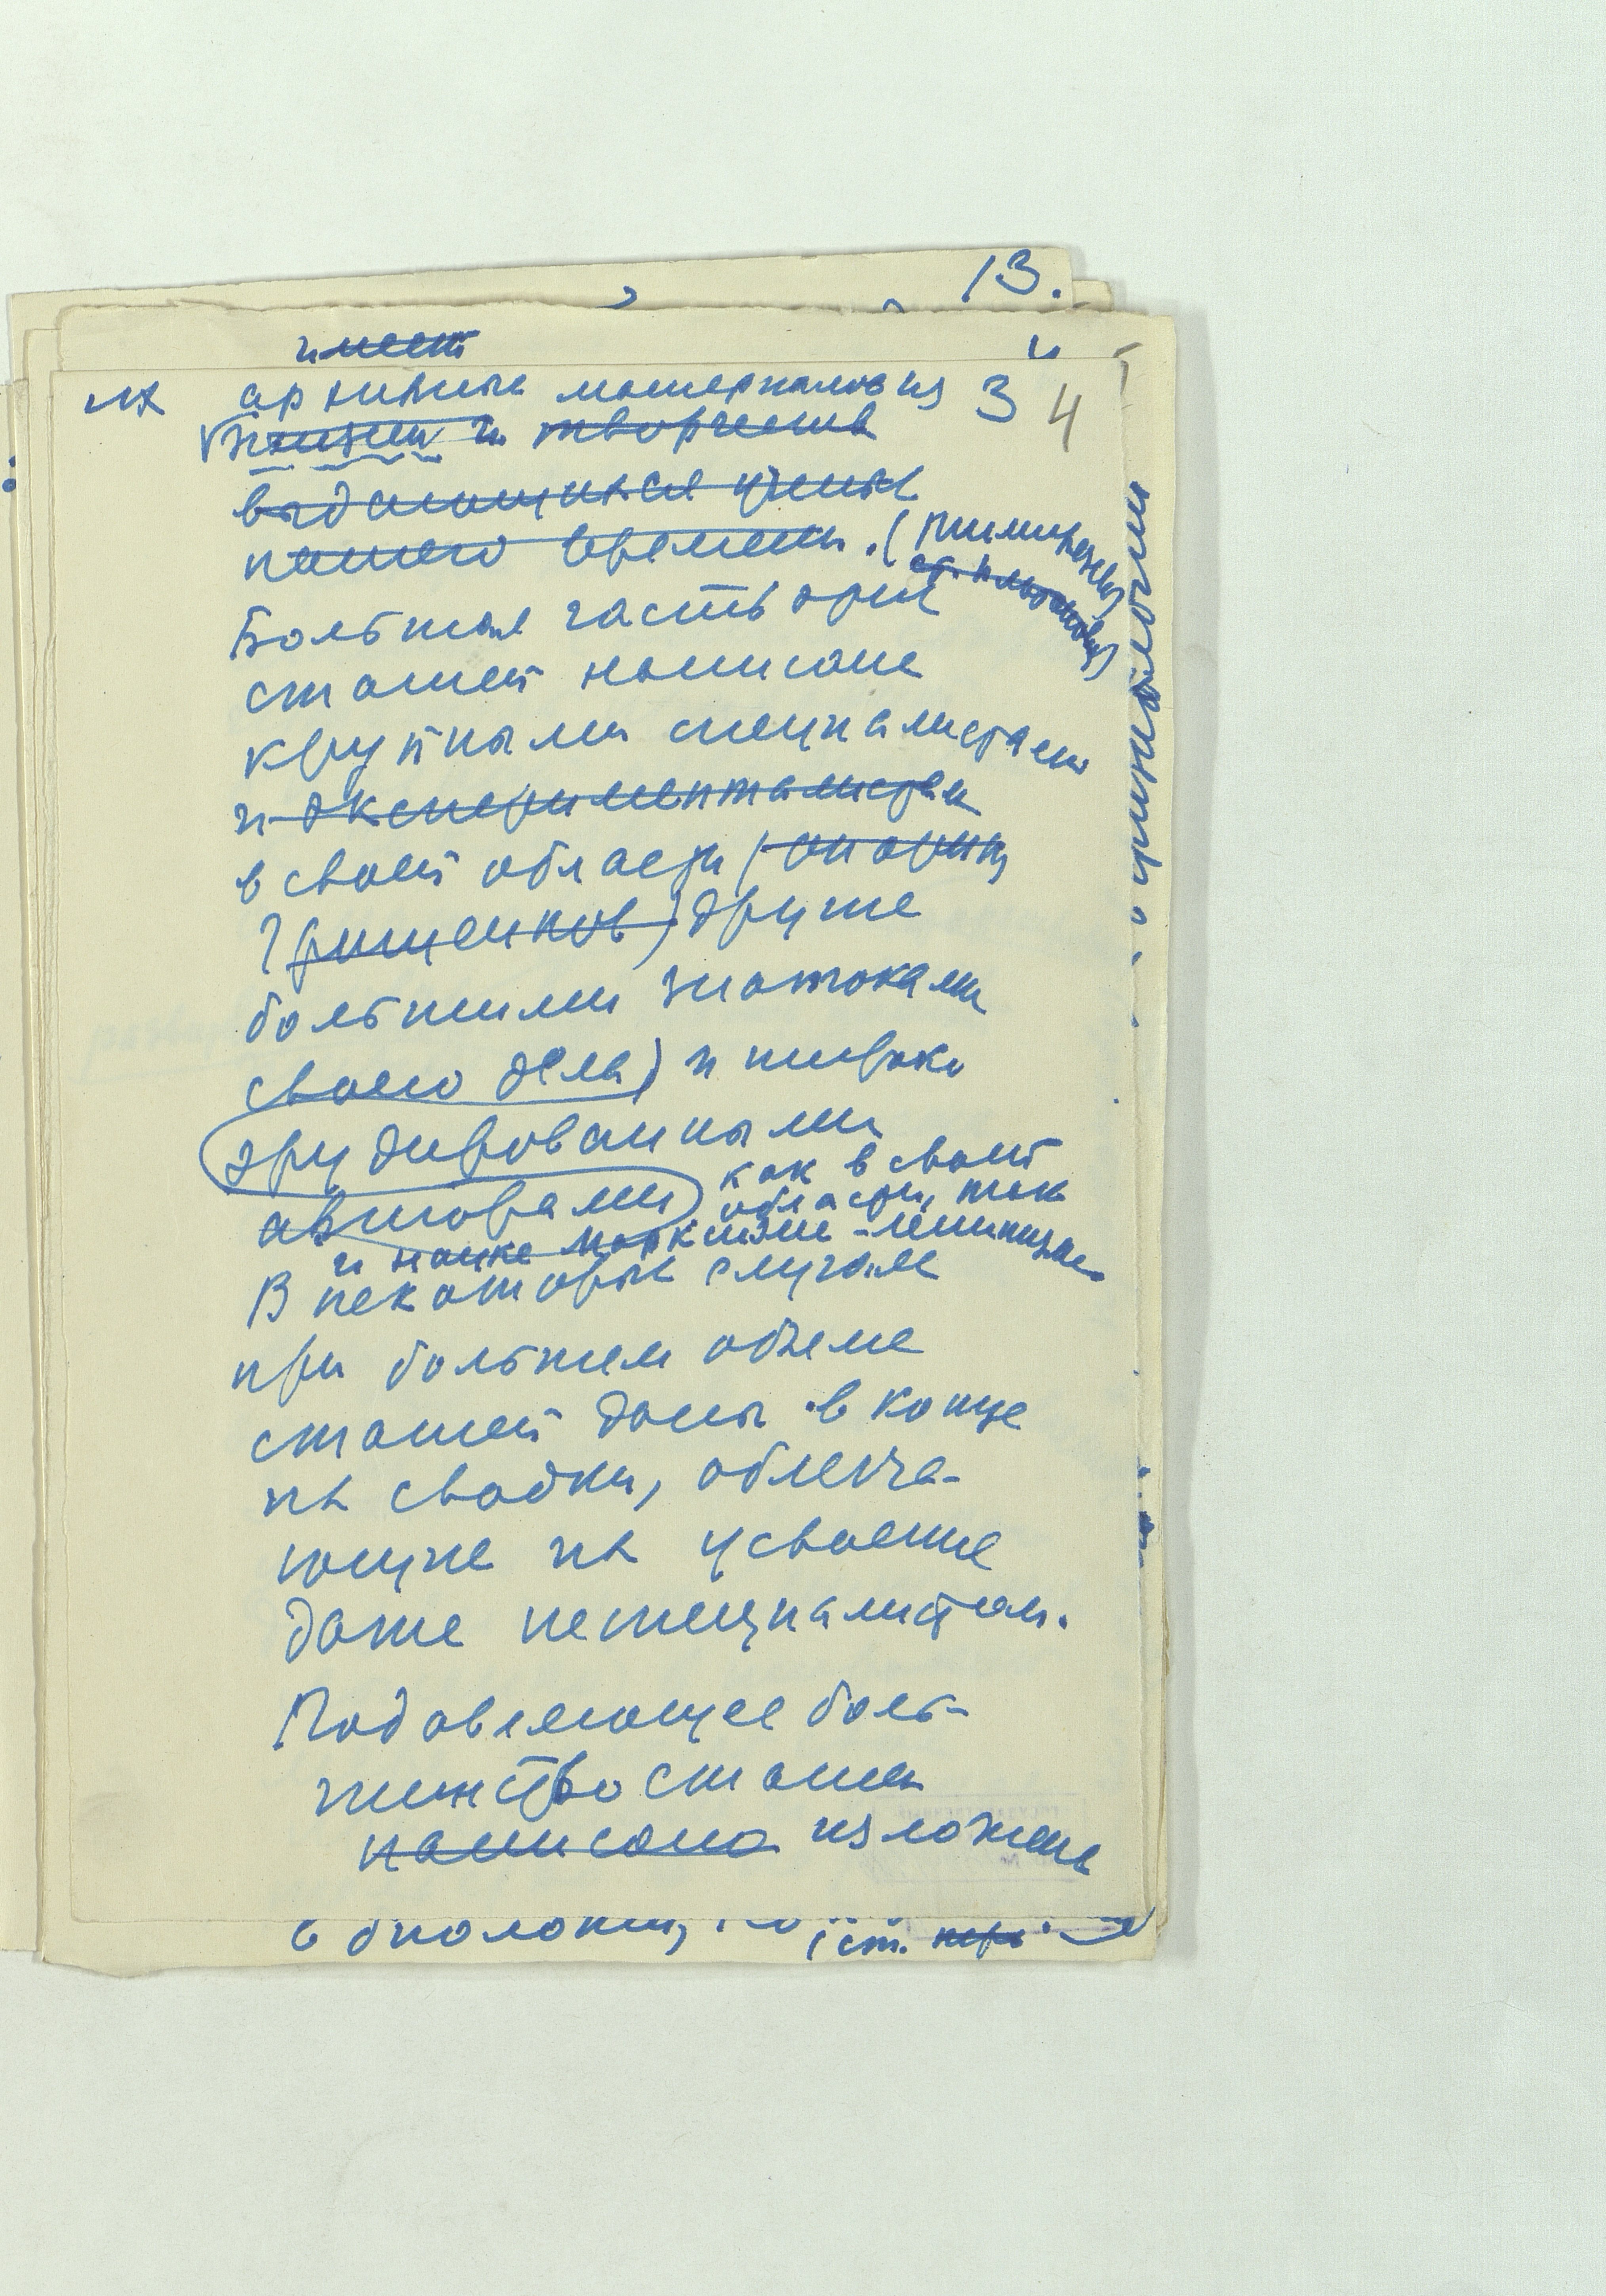 13.
имеет
их архивных материалов из 3 4
жизни и творчества
выдающихся ученых
нашего времени. (Тимирязев)
Большая часть этих
статей написана
крупными специалистами
и эксперименталистами
в своей области (Опарин,
Грищенков) другие
большими знатоками
своего дела) и широко
эрудированными
авторами как в своей
области, так
и науке марксизме-ленинизме
В некоторых случаях
при большем объеме
статей даны в конце
их сводки, облегча-
ющие их усвоение
даже неспециалистам.
Подавляющее боль-
шинство статей
написано изложены
в биологии,
(ст.